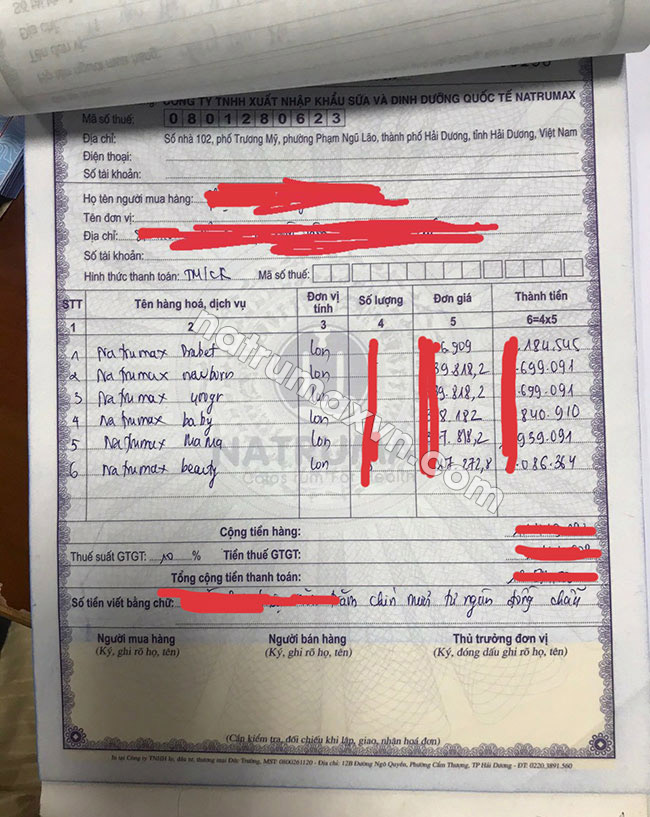 CÔNG TY TNHH XUẤT NHẬP KHẨU SỮA VÀ DINH DƯỠNG QUỐC TẾ NATRUMAX
Mã số thuế: 0801280623
Địa chỉ: Số nhà 102, phố Trương Mỹ, phường Phạm Ngũ Lão, thành phố Hải Dương, tỉnh Hải Dương, Việt Nam
Điện thoại:
Số tài khoản:
Họ tên người mua hàng:
Tên đơn vị:
Địa chỉ:
Số tài khoản:
Hình thức thanh toán: TM/CK Mã số thuế:
STT Tên hàng hoá, dịch vụ Đơn vị tính Số lượng Đơn giá Thành tiền
1 2 3 4 5 6=4x5
1 Natrumax Diabet lon 6.909 184.545
2 Natrumax newborn lon 39.818,2 .699.091
3 Natrumax lon 9.818,2 .699.091
4 Natrumax baby lon 8.182 840.910
5 Natrumax Mama lon 7.818,2 959.091
6 Natrumax beauty lon 7.272,8 .086.364
NATRUMAX
Colostrum For Health
natrumaxvn.com
Cộng tiền hàng:
Thuế suất GTGT: 10 % Tiền thuế GTGT:
Tổng cộng tiền thanh toán:
Số tiền viết bằng chữ: trăm chín mươi tư ngàn đồng chẵn
Người mua hàng Người bán hàng Thủ trưởng đơn vị
(Ký, ghi rõ họ, tên) (Ký, ghi rõ họ, tên) (Ký, đóng dấu ghi rõ họ, tên)
(Cần kiểm tra, đối chiếu khi lập, giao, nhận hoá đơn)
In tại Công ty TNHH In, đầu tư, thương mại Đức Trường, MST: 0800261120 - Địa chỉ: 12B Đường Ngô Quyền, Phường Cẩm Thượng, TP Hải Dương - ĐT: 0220.3891.560